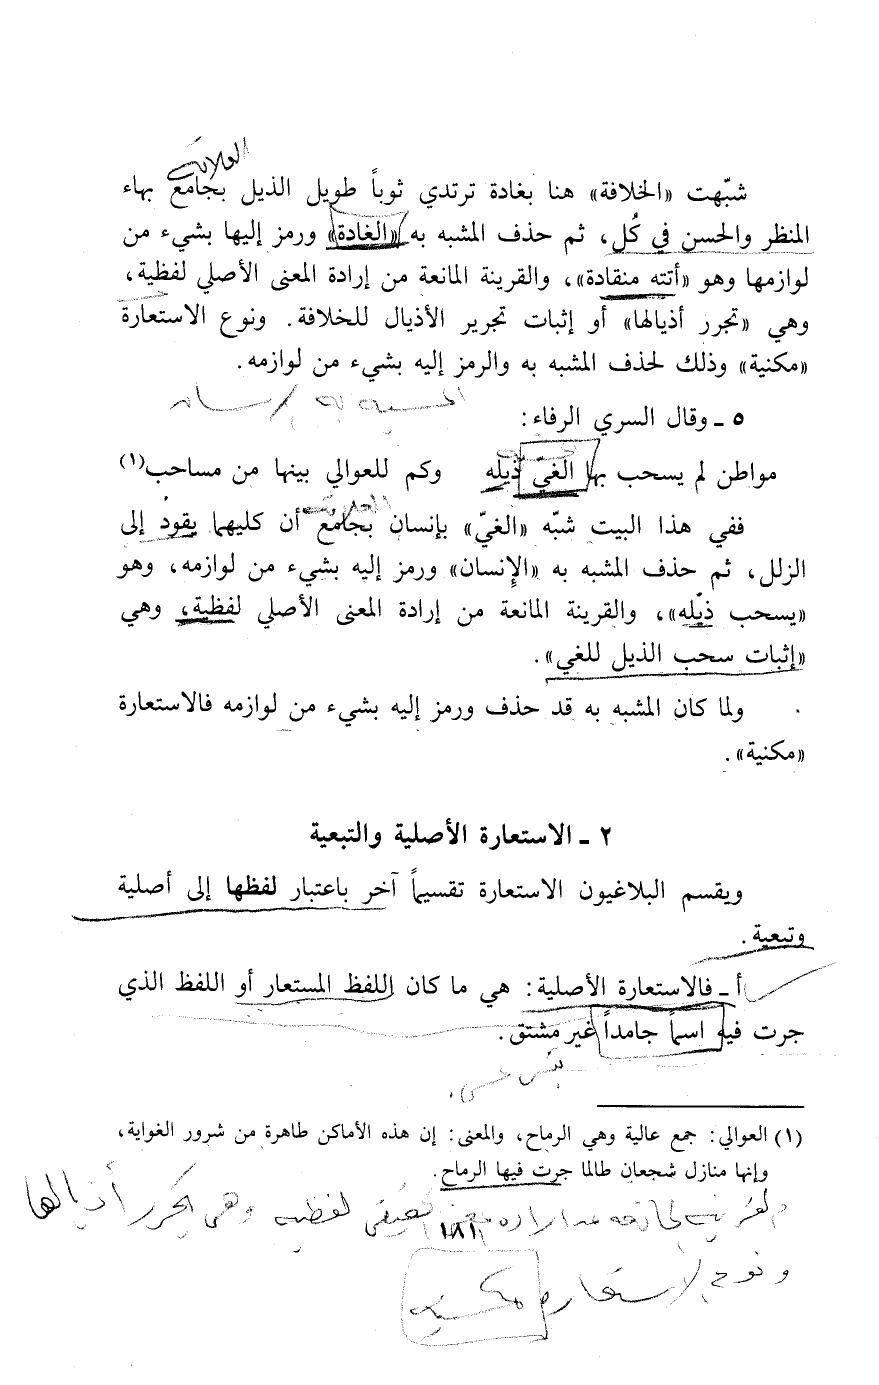 العلاقة
شبّهت «الخلافة» هنا بغادة ترتدي ثوباً طويل الذيل بجامع بهاء
المنظر والحسن في كُل، ثم حذف المشبه به «الغادة» ورمز إليها بشيء من
لوازمها وهو «أتته منقادة»، والقرينة المانعة من إرادة المعنى الأصلي لفظية،
وهي «تجرر أذيالها» أو إثبات تجرير الأذيال للخلافة. ونوع الاستعارة
«مكنية» وذلك لحذف المشبه به والرمز إليه بشيء من لوازمه.
المشبه به إنسان
٥ ـ وقال السري الرفاء:
مواطن لم يسحب بها الغي ذيله وكم للعوالي بينها من مساحب(١)
ففي هذا البيت شبّه «الغيّ» بإنسان بجامع أن كليهما يقود إلى
الزلل، ثم حذف المشبه به «الإنسان» ورمز إليه بشيء من لوازمه، وهو
«يسحب ذيله»، والقرينة المانعة من إرادة المعنى الأصلي لفظية، وهي
«إثبات سحب الذيل للغي».
ولما كان المشبه به قد حذف ورمز إليه بشيء من لوازمه فالاستعارة
«مكنية».
٢ ـ الاستعارة الأصلية والتبعية
ويقسم البلاغيون الاستعارة تقسيماً آخر باعتبار لفظها إلى أصلية
وتبعية.
أ ـ فالاستعارة الأصلية: هي ما كان اللفظ المستعار أو اللفظ الذي
جرت فيه اسماً جامداً غير مشتق.
(١) العوالي: جمع عالية وهي الرماح، والمعنى: إن هذه الأماكن طاهرة من شرور الغواية،
وإنها منازل شجعان طالما جرت فيها الرماح.
القرينة المانعة من إرادة معنى الحقيقي لفظية وهي تجرر أذيالها
١٨١
ونوع الاستعارة مكنية